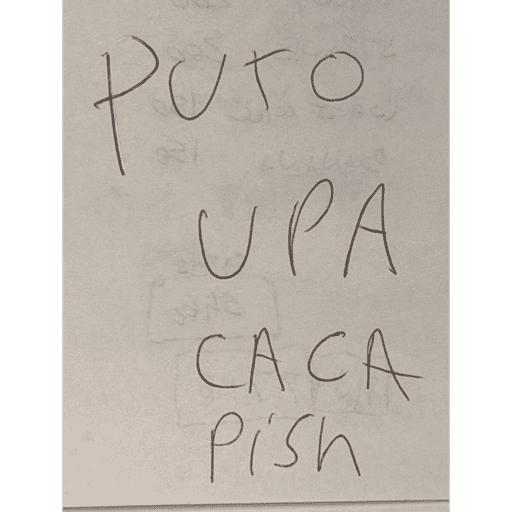 PUTO
UPA
CACA
Pish